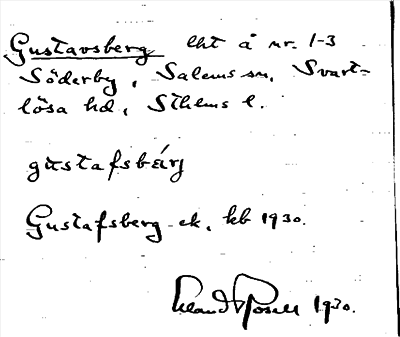 Gustavsberg lht å nr. 1-3
Söderby, Salems sn, Svart-
lösa hd, Sthlms l.
gustafsbärj
Gustafsberg ek. kb 1930.
1930.